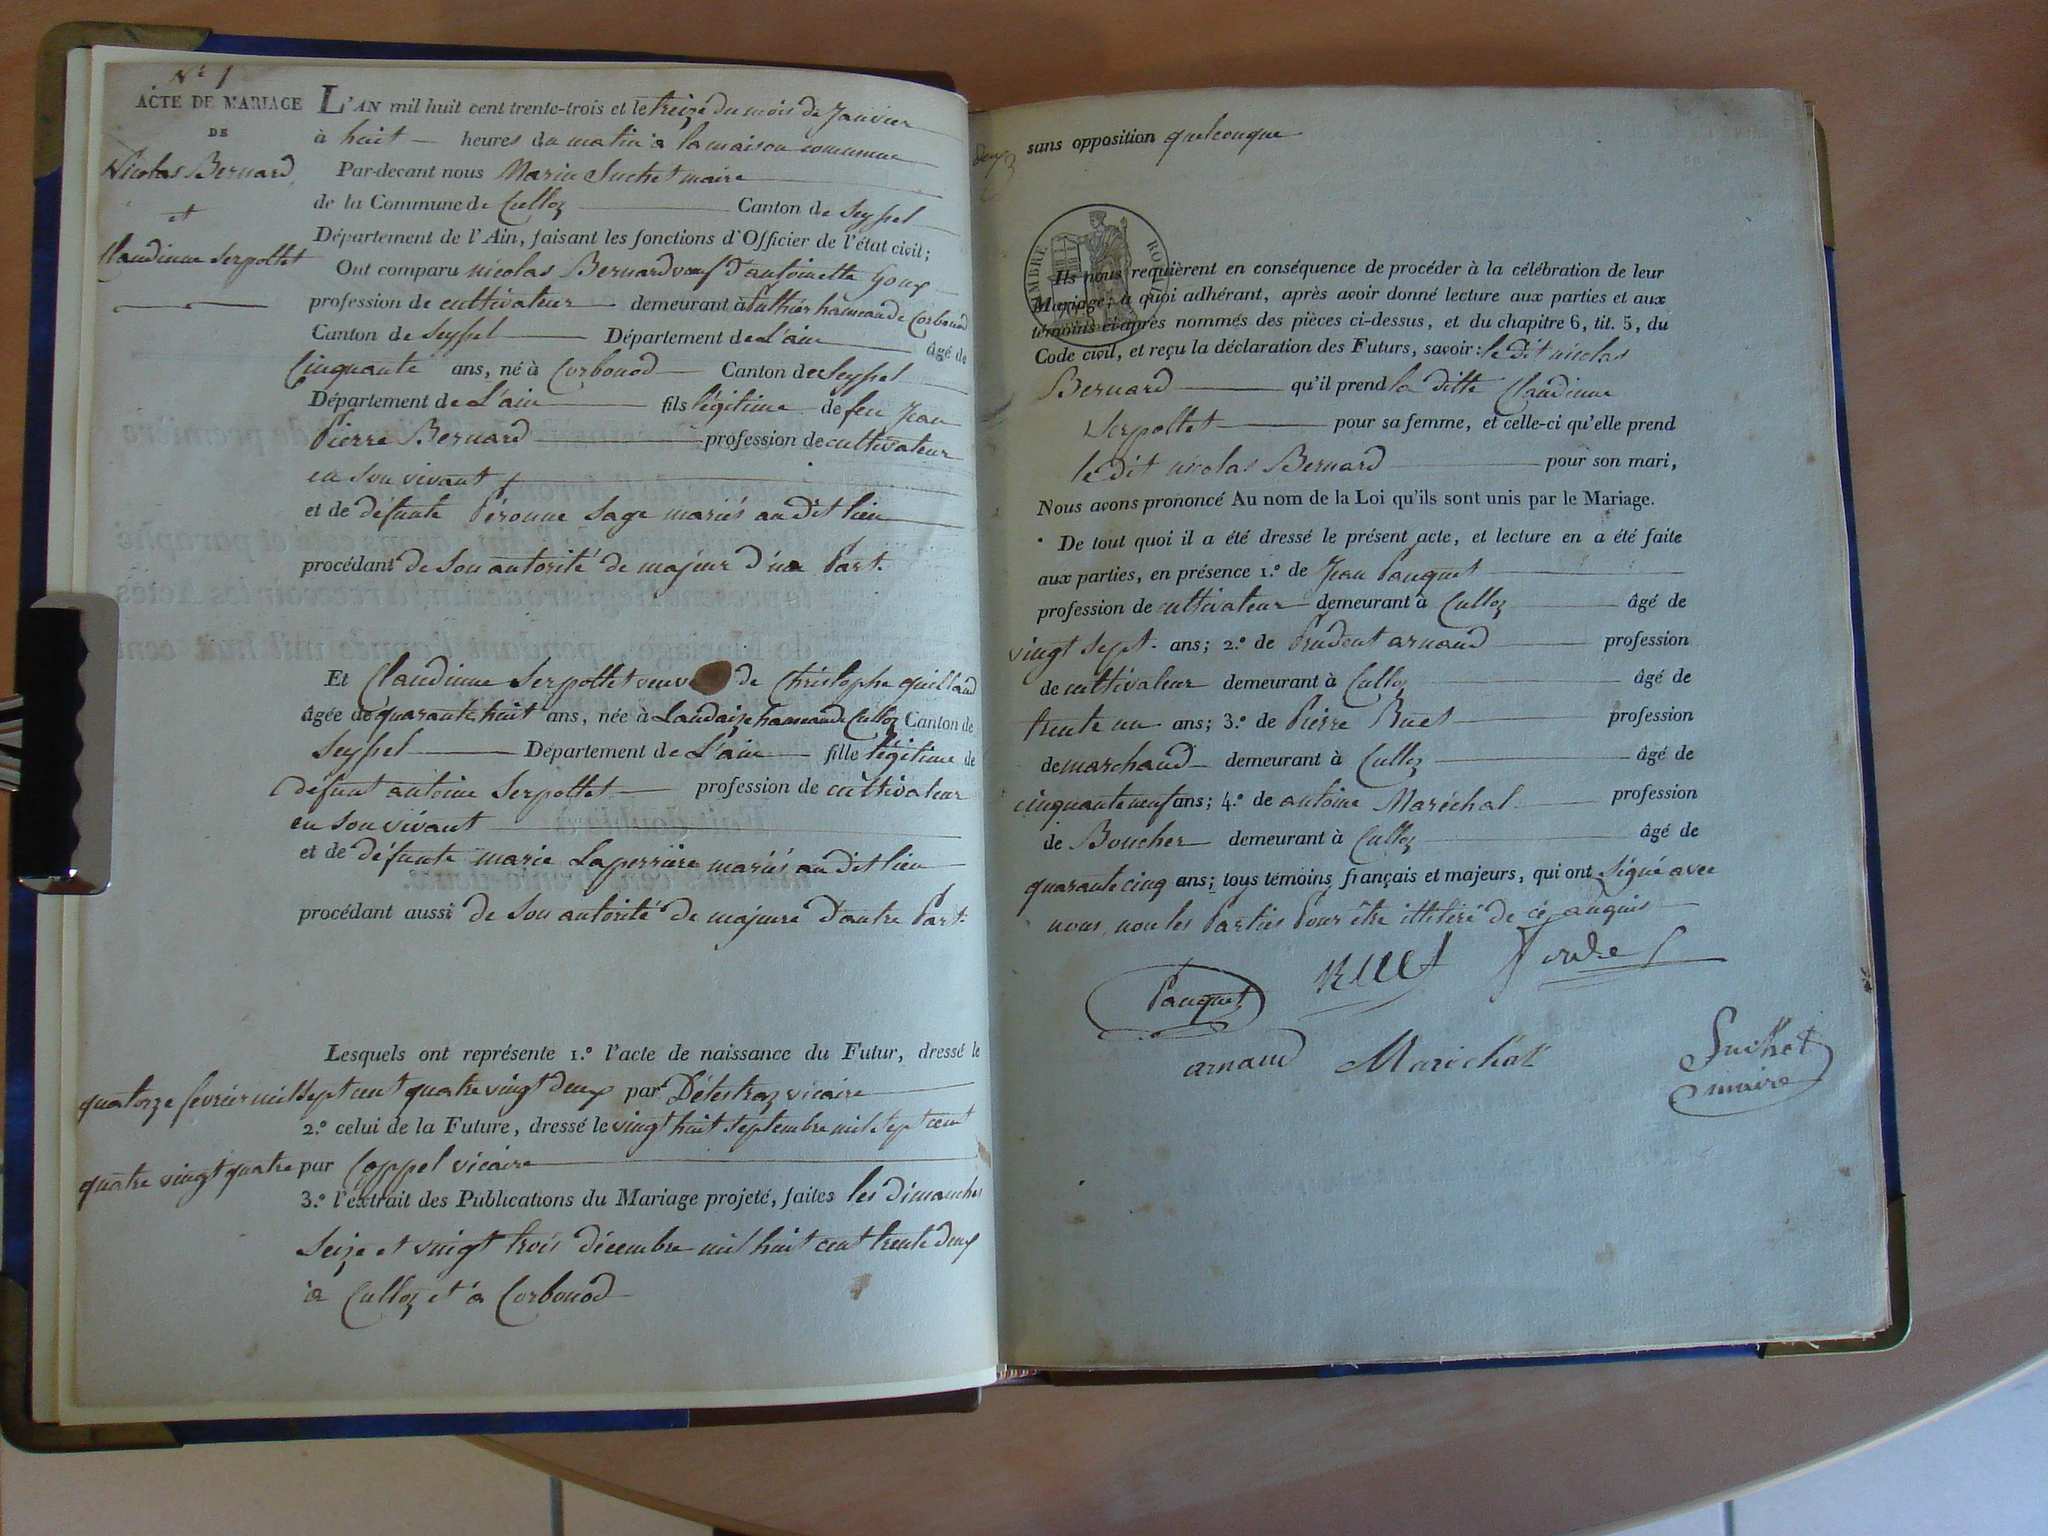 Nº 1
ACTE DE MARIAGE
DE
Nicolas Bernard
et
Claudinne Serpollet
L'AN mil huit cent trente-trois et le treize du mois de Janvier
à huit heures du matin à la maison commune
Par-devant nous Marin Suchet maire
de la Commune de Culloz Canton de Seyssel
Département de l'Ain, faisant les fonctions d'Officier de l'état civil;
Ont comparu nicolas Bernard veuf d'antoinette Goux
profession de cultivateur demeurant à hameau de Corbonod
Canton de Seyssel Département de L'ain âgé de
Cinquante ans, né à Corbonod Canton de Seyssel
Département de L'ain fils légitime de feu Jean
Pierre Bernard profession de cultivateur
en son vivant
et de défunte Péronne Sage mariés au dit lieu
procédant de son autorité de majeur d'une Part.
Et Claudinne Serpollet veuve de Christophe quilland
âgée de quarante huit ans, née à Landaize hameau de Culloz Canton de
Seyssel Département de L'ain fille légitime de
défunt antoine Serpollet profession de cultivateur
en son vivant
et de défunte marie Laperrière mariés au dit lieu
procédant aussi de son autorité de majeure d'autre Part.
Lesquels ont représenté 1.º l'acte de naissance du Futur, dressé le
quatorze fevrier mil sept cent quatre vingt deux par Délestraz vicaire
2.º celui de la Future, dressé le vingt huit septembre mil sept cent
quatre vingt quatre par Coppel vicaire
3.º l'extrait des Publications du Mariage projeté, faites les dimanches
Seize et vingt trois décembre mil huit cent trente deux
à Culloz et à Corbonod
sans opposition quelconque
TIMBRE ROYAL
Ils nous requièrent en conséquence de procéder à la célébration de leur
Mariage; à quoi adhérant, après avoir donné lecture aux parties et aux
témoins ci-après nommés des pièces ci-dessus, et du chapitre 6, tit. 5, du
Code civil, et reçu la déclaration des Futurs, savoir: le dit nicolas
Bernard qu'il prend la ditte Claudinne
Serpollet pour sa femme, et celle-ci qu'elle prend
le dit nicolas Bernard pour son mari,
Nous avons prononcé Au nom de la Loi qu'ils sont unis par le Mariage.
De tout quoi il a été dressé le présent acte, et lecture en a été faite
aux parties, en présence 1.º de Jean Pauquet
profession de cultivateur demeurant à Culloz âgé de
vingt sept ans; 2.º de Prudent arnaud profession
de cultivateur demeurant à Culloz âgé de
trente un ans; 3.º de Pierre Ruet profession
de marchand demeurant à Culloz âgé de
cinquante neuf ans; 4.º de antoine Maréchal profession
de Boucher demeurant à Culloz âgé de
quarante cinq ans; tous témoins français et majeurs, qui ont signé avec
nous, non les Parties Pour être illitéré de ce anquis
Pauquet
arnaud Marichal Suchet
maire